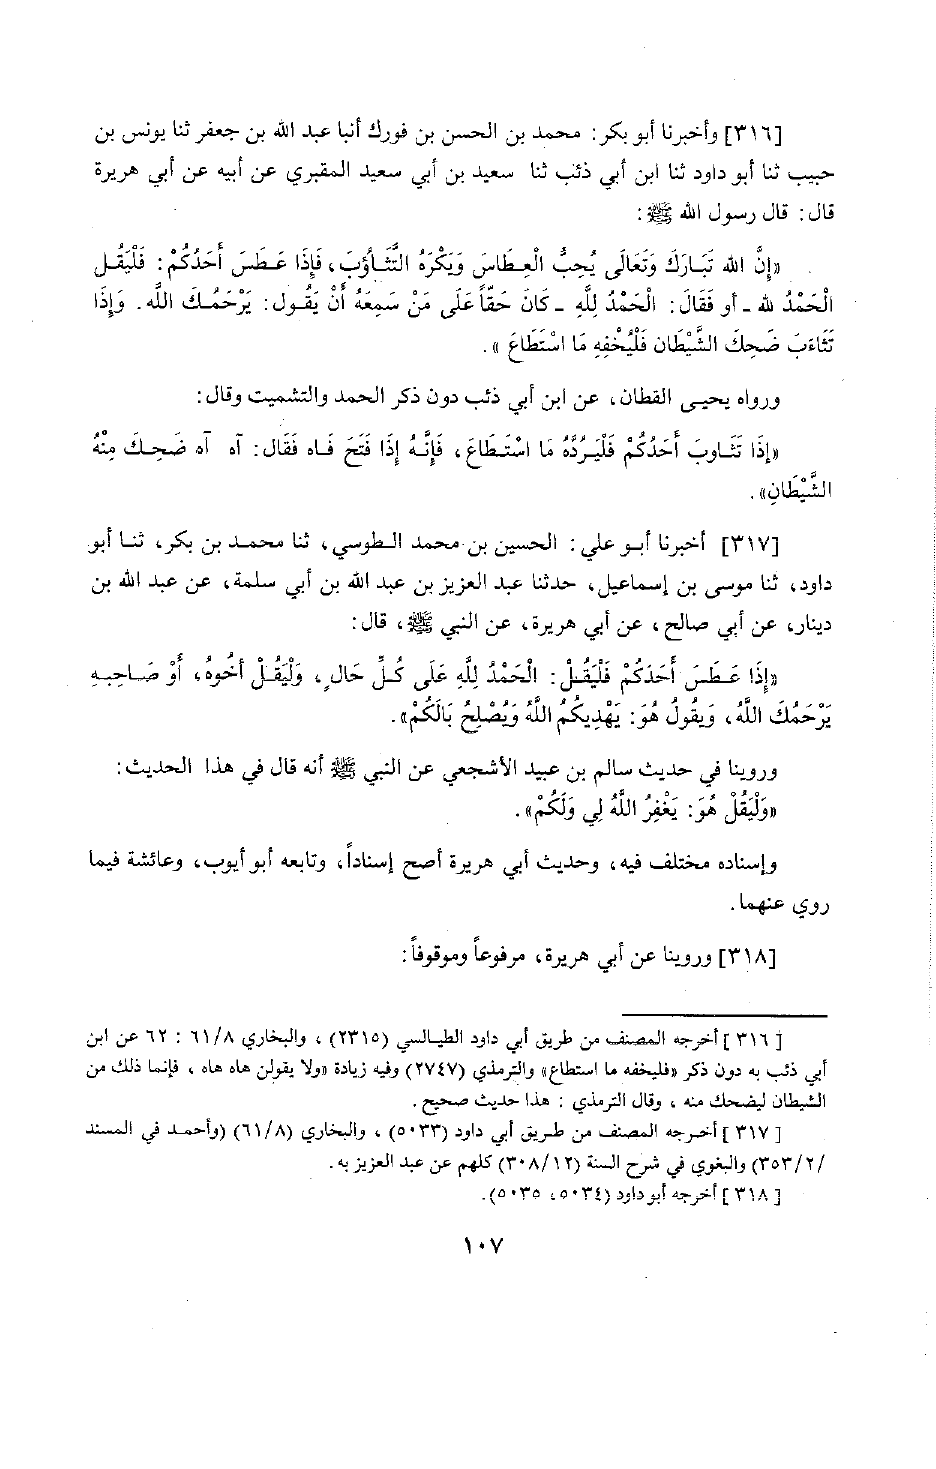 [٣١٦] وأخبرنا أبو بكر: محمد بن الحسن بن فورك أنبا عبد الله بن جعفر ثنا يونس بن
حبيب ثنا أبو داود ثنا ابن أبي ذئب ثنا سعيد بن أبي سعيد المقبري عن أبيه عن أبي هريرة
قال: قال رسول الله ﷺ:
«إِنَّ الله تَبَارَكَ وَتَعَالَى يُحِبُّ الْعِطَاسَ وَيَكْرَهُ التَّثَاؤُبَ، فَإِذَا عَطَسَ أَحَدُكُمْ: فَلْيَقُلِ
الْحَمْدُ لله ـ أو فَقَالَ: الْحَمْدُ لِلَّهِ ـ كَانَ حَقّاً عَلَى مَنْ سَمِعَهُ أَنْ يَقُولَ: يَرْحَمُكَ اللَّه. وَإِذَا
تَثَاءَبَ ضَحِكَ الشَّيْطَان فَلْيُخْفِهِ مَا اسْتَطَاعَ».
ورواه يحيى القطان، عن ابن أبي ذئب دون ذكر الحمد والتشميت وقال:
«إِذَا تَثَاوبَ أَحَدُكُمْ فَلْيَرُدَّهُ مَا اسْتَطَاعَ، فَإِنَّهُ إِذَا فَتَحَ فَاه فَقَالَ: آه آه ضَحِكَ مِنْهُ
الشَّيْطَانِ».
[٣١٧] أخبرنا أبو علي: الحسين بن محمد الطوسي، ثنا محمد بن بكر، ثنا أبو
داود، ثنا موسى بن إسماعيل، حدثنا عبد العزيز بن عبد الله بن أبي سلمة، عن عبد الله بن
دينار، عن أبي صالح، عن أبي هريرة، عن النبي ﷺ، قال:
«إِذَا عَطَسَ أَحَدَكُمْ فَلْيَقُلْ: الْحَمْدُ لِلَّهِ عَلَى كُلِّ حَالٍ، وَلْيَقُلْ أَخُوهُ، أَوْ صَاحِبِهِ
يَرْحَمُكَ اللَّهُ، وَيقُولُ هُوَ: يَهْدِيكُمُ اللَّهُ وَيُصْلِحُ بَالَكُمْ».
وروينا في حديث سالم بن عبيد الأشجعي عن النبي ﷺ أنه قال في هذا الحديث:
«وَلْيَقُلْ هُوَ: يَغْفِرُ اللَّهُ لِي وَلَكُمْ».
وإسناده مختلف فيه، وحديث أبي هريرة أصح إسناداً، وتابعه أبو أيوب، وعائشة فيما
روي عنهما.
[٣١٨] وروينا عن أبي هريرة، مرفوعاً وموقوفاً:
[٣١٦] أخرجه المصنف من طريق أبي داود الطيالسي (٢٣١٥)، والبخاري ٦١/٨ : ٦٢ عن ابن
أبي ذئب به دون ذكر «فليخفه ما استطاع» والترمذي (٢٧٤٧) وفيه زيادة «ولا يقولن هاه هاه ، فإنما ذلك من
الشيطان ليضحك منه ، وقال الترمذي : هذا حديث صحيح .
[٣١٧] أخرجه المصنف من طريق أبي داود (٥٠٣٣) ، والبخاري (٦١/٨) (وأحمد في المسند
٣٥٣/٢/) والبغوي في شرح السنة (٣٠٨/١٢) كلهم عن عبد العزيز به.
[٣١٨] أخرجه أبو داود (٥٠٣٤، ٥٠٣٥).
١٠٧